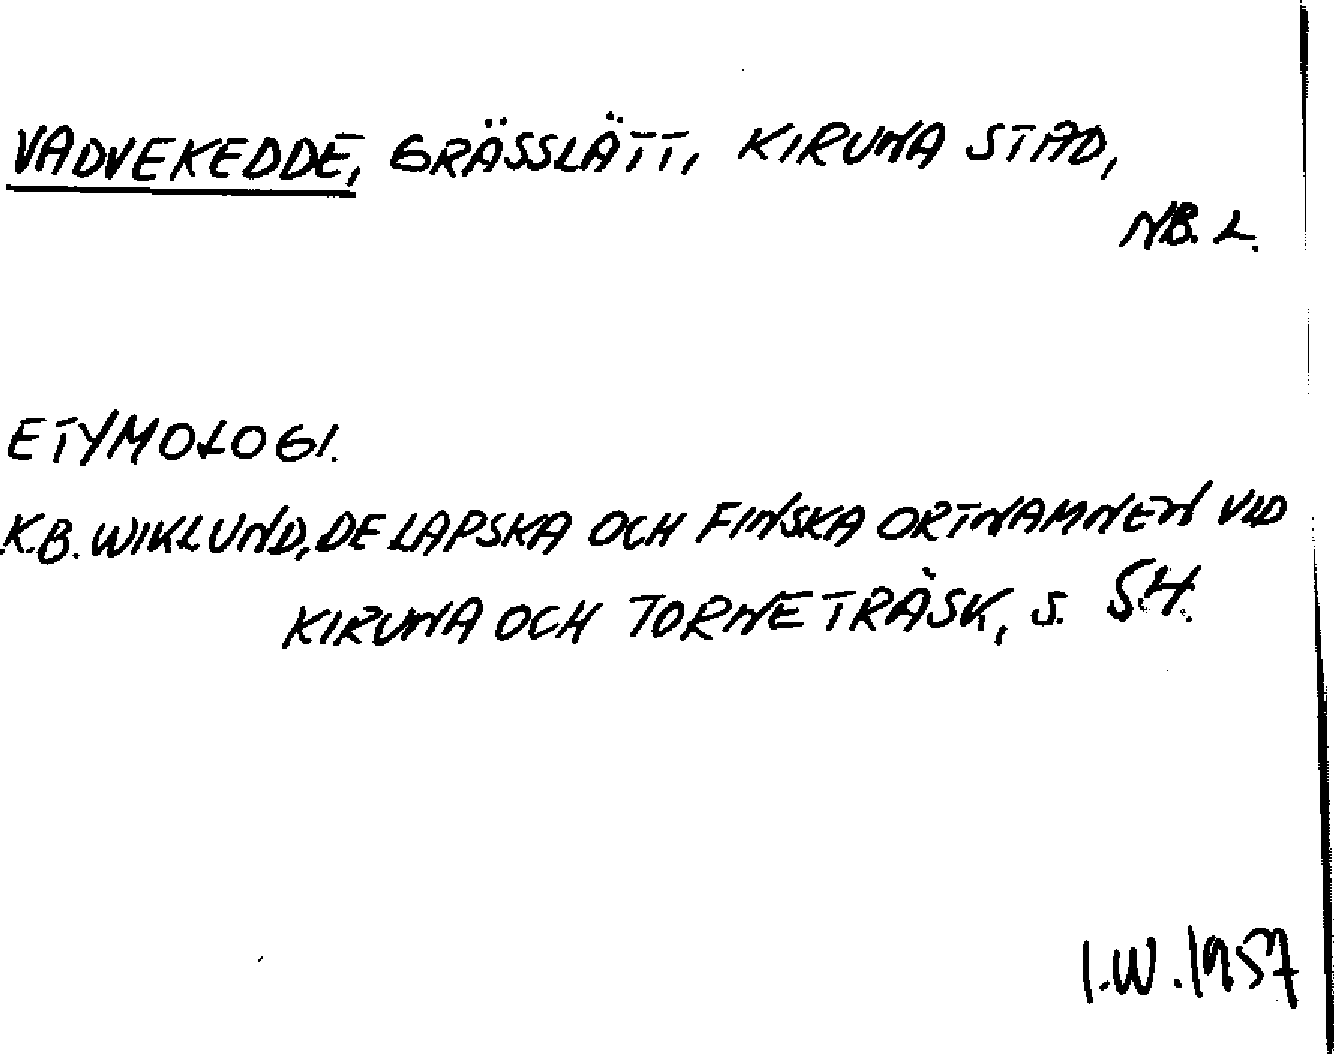 VADVEKEDDE, GRÄSSLÄTT, KIRUNA STAD,
NB. L.
ETYMOLOGI.
K.B. WIKLUND, DE LAPSKA OCH FINSKA ORTNAMNEN VID
KIRUNA OCH TORNETRÄSK, S. 54.
I.W. 1957